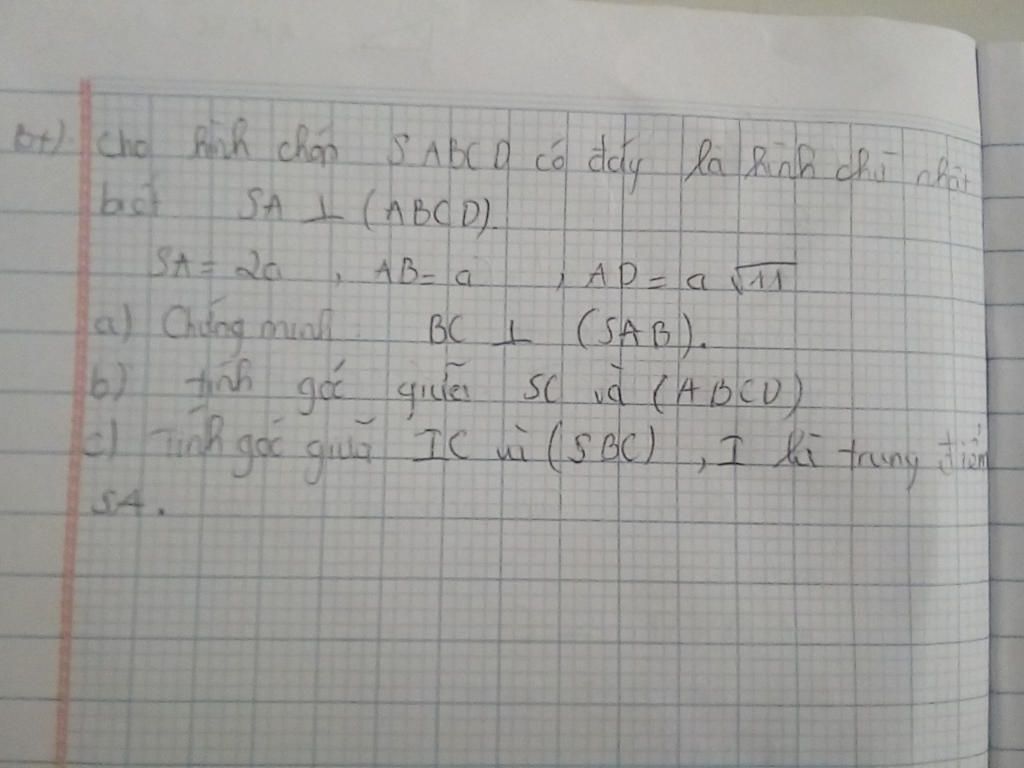 Bt) Cho hình chóp SABCD có đáy là hình chữ nhật
biết SA ⊥ (ABCD).
SA = 2a , AB = a , AD = a √11
a) Chứng minh BC ⊥ (SAB).
b) tính góc giữa SC và (ABCD)
c) Tính góc giữa IC và (SBC) , I là trung điểm
SA.